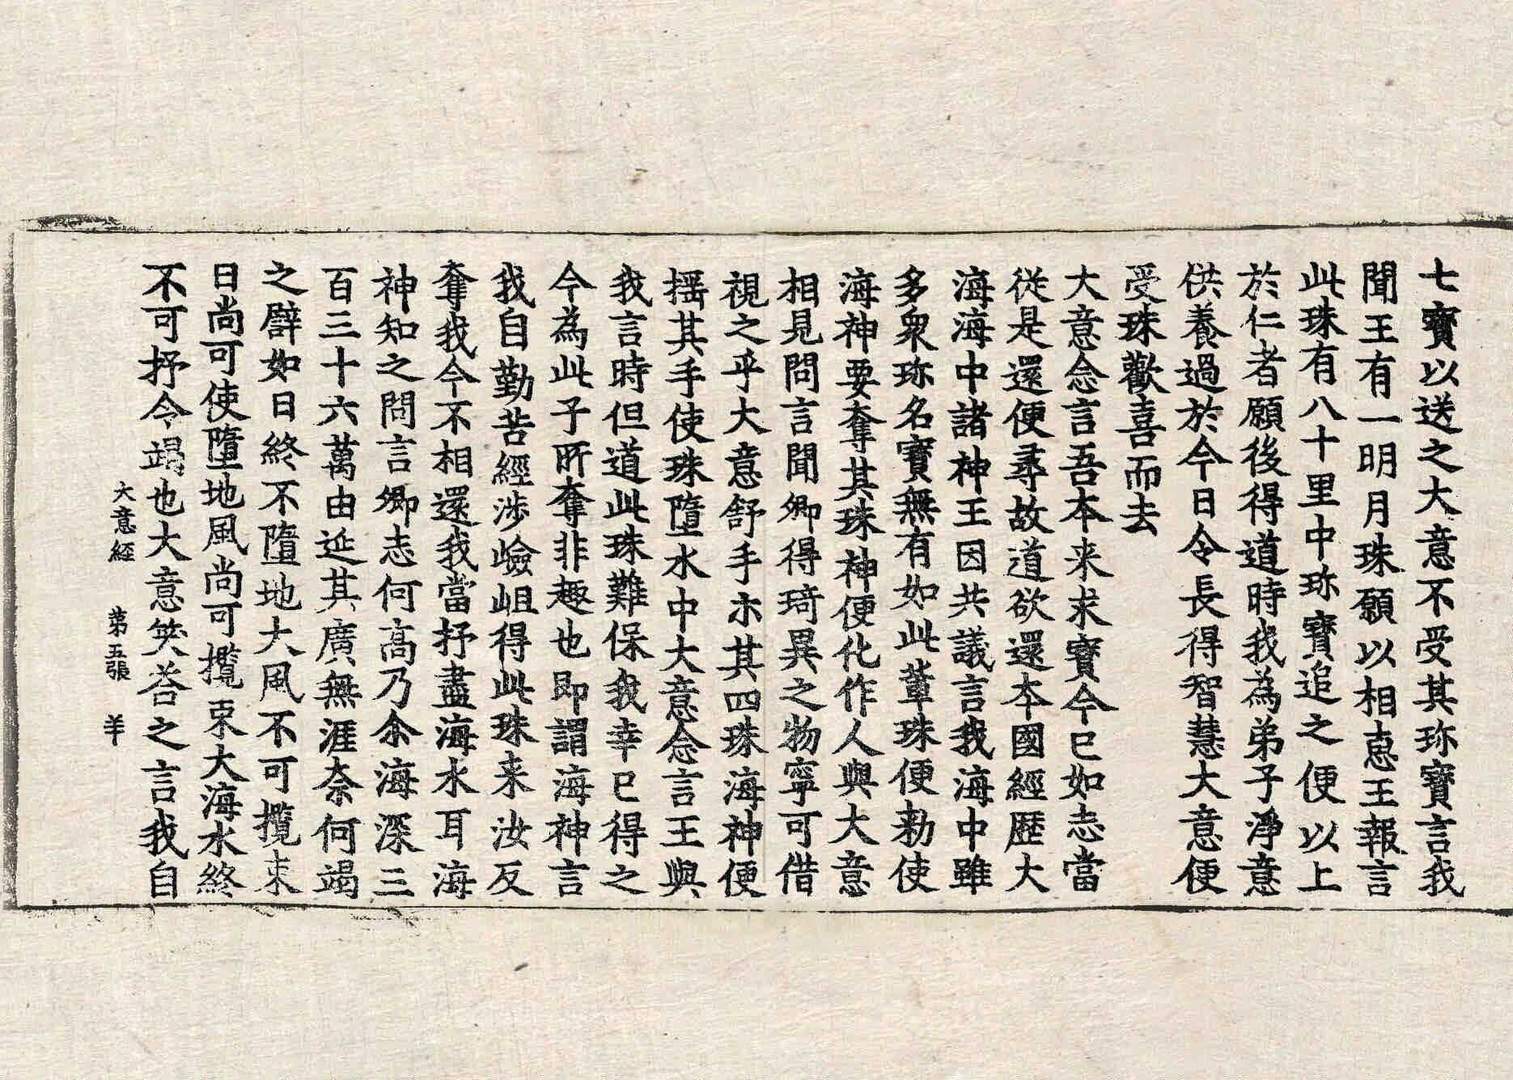 七寶以送之大意不受其珎寶言我
聞王有一明月珠願以相惠王報言
此珠有八十里中珎寶追之便以上
於仁者願後得道時我為弟子淨意
供養過於今日令長得智慧大意便
受珠歡喜而去
大意念言吾本来求寶今已如志當
從是還便尋故道欲還本國經歷大
海海中諸神王因共議言我海中雖
多衆珎名寶無有如此輩珠便勑使
海神要奪其珠神便化作人與大意
相見問言聞卿得琦異之物寧可借
視之乎大意舒手示其四珠海神便
揺其手使珠墮水中大意念言王與
我言時但道此珠難保我幸已得之
今為此子所奪非趣也即謂海神言
我自勤苦經涉嶮岨得此珠来汝反
奪我今不相還我當抒盡海水耳海
神知之問言卿志何高乃尒海深三
百三十六萬由延其廣無涯奈何竭
之譬如日終不墮地大風不可攬束
日尚可使墮地風尚可攬束大海水終
不可抒令竭也大意笑荅之言我自
大意經 第五張 羊